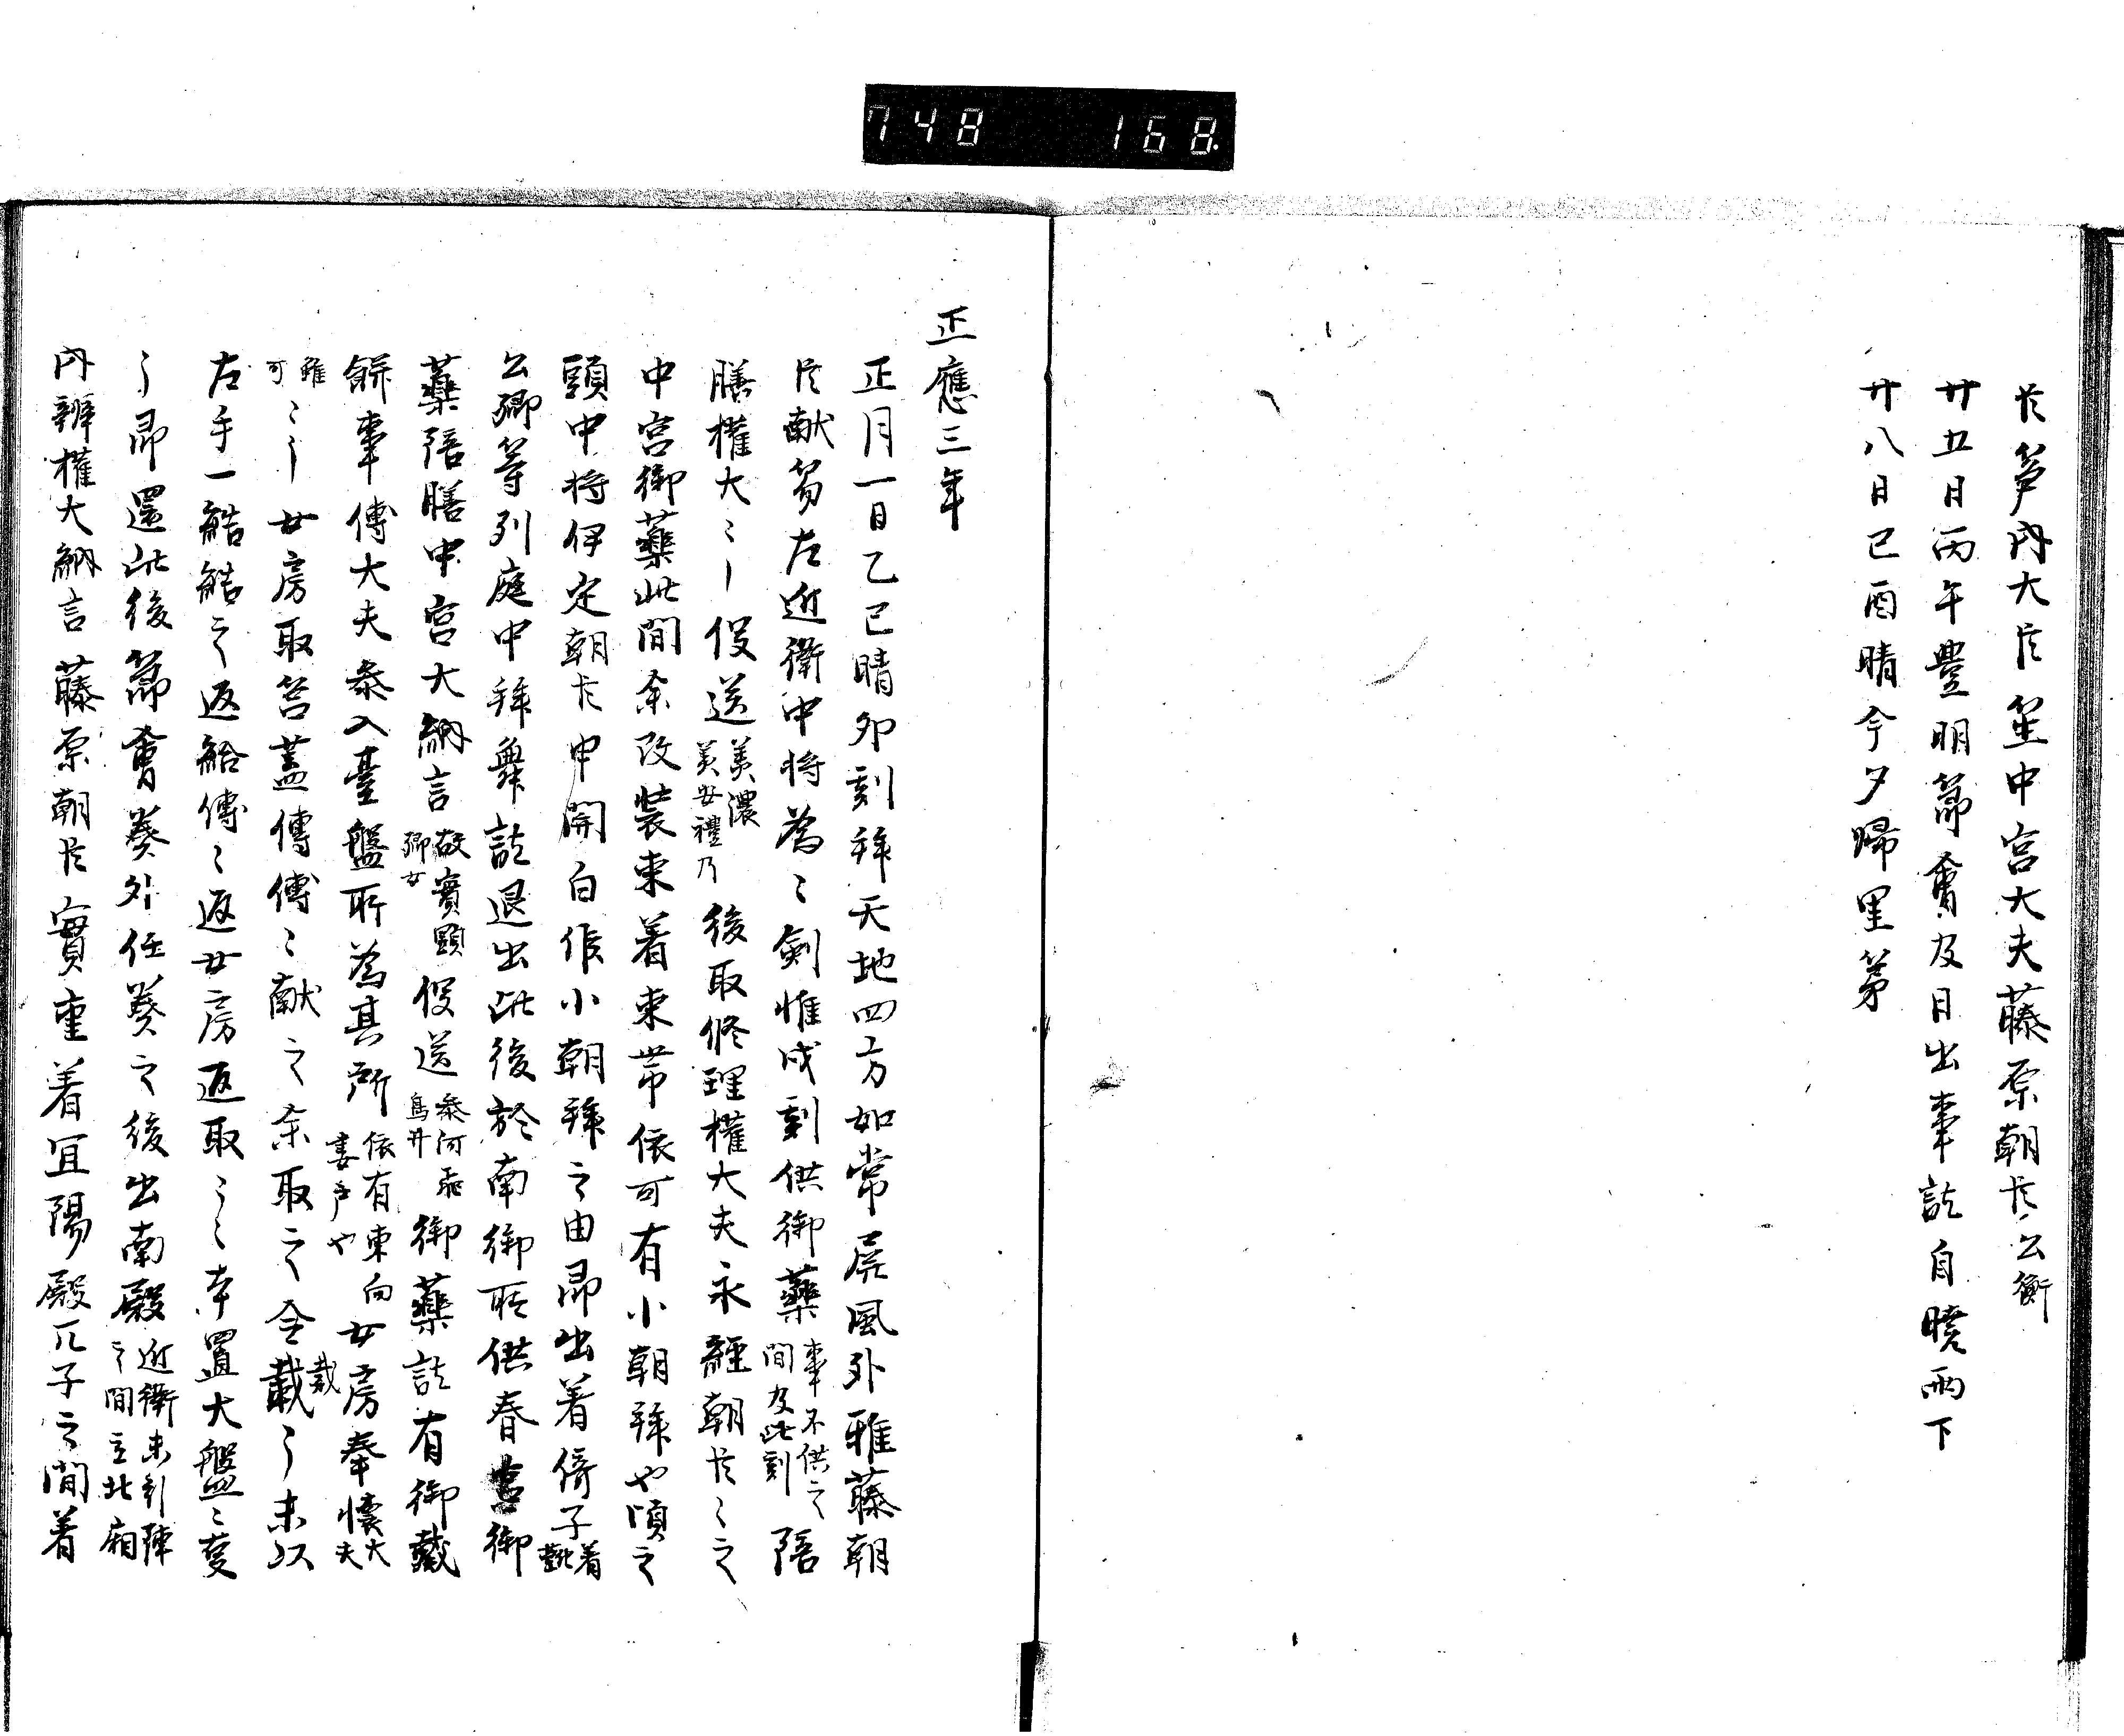 748 168.
臣箏内大臣笙中宮大夫藤原朝臣公衡
廿五日丙午豊明節會及日出事訖自曉雨下
廿八日己酉晴今夕帰里第
正應三年
正月一日乙巳晴卯刻拜天地四方如常屏風外雅藤朝
臣献笏左近衛中将為〻劍惟成刻供御藥事不供之間及此刻陪
膳權大〻〡役送美濃美安禮乃後取修理權大夫永經朝臣〻之
中宮御藥此間余改装束着束帯依可有小朝拜也頃之
頭中将伊定朝臣申関白作小朝拜之由即出着倚子着靴
公卿等列庭中拜舞訖退出此後於南御所供春宮御
藥陪膳中宮大納言故實顕卿女役送参河鳥井御藥訖有御戴
餅事傅大夫参入臺盤所為其所依有東向妻戸也女房奉懐大夫
雖可〻〡女房取筥蓋傳傅〻献之余取之令載〻未以
左手一餅餅之返給傅〻返女房返取〻〻本置大盤〻
〻即還此後節會奏外任奏之後出南殿近衛未引陣之間立北廂
内辨權大納言藤原朝臣實重着宜陽殿兀子之間着